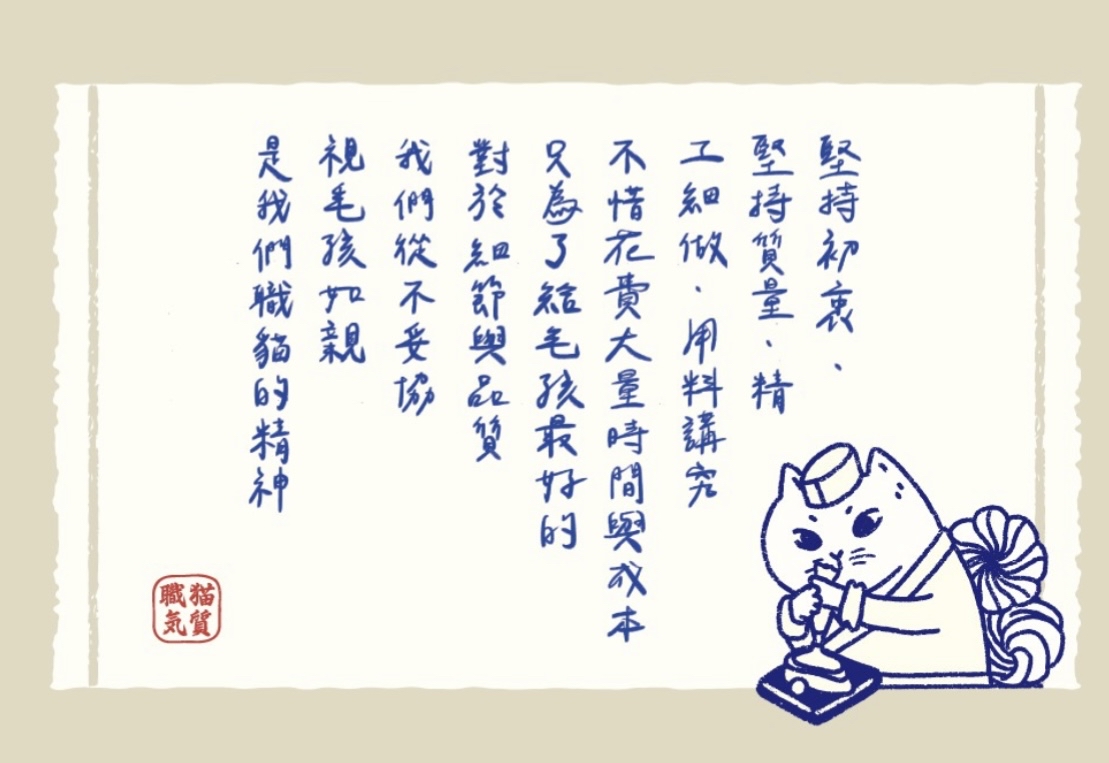 堅持初衷、
堅持質量、精
工細做、用料講究
不惜花費大量時間與成本
只為了給毛孩最好的
對於細節與品質
我們從不妥協
視毛孩如親
是我們職貓的精神
猫質
職気